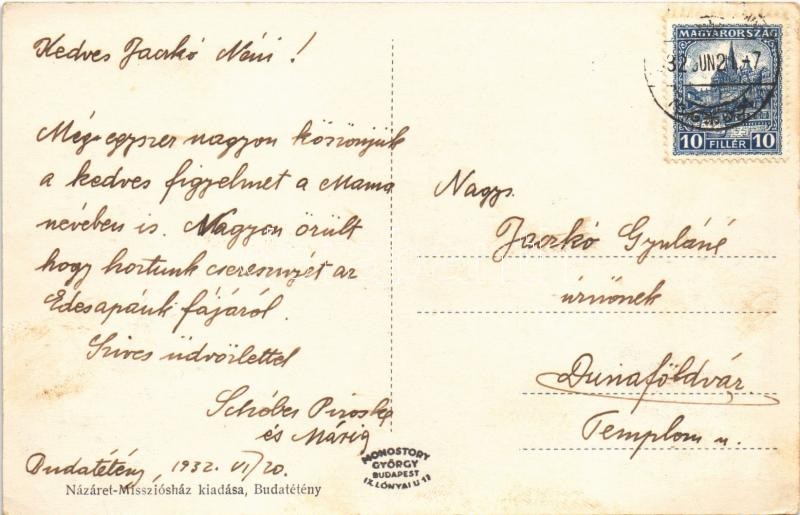 Kedves Jaskó Néni!
Még egyszer nagyon köszönjük
a kedves figyelmet a Mama
nevében is. Nagyon örült
hogy hoztunk cseresznyét az
Édesapánk fájáról.
Szíves üdvözlettel
Schóber Piroska
és Mária
Budatétény, 1932. VI/20.
Názáret-Missziósház kiadása, Budatétény
MONOSTORY
GYÖRGY
BUDAPEST
IX. LÓNYAI U 11
MAGYARORSZÁG
32 JUN 21
10 FILLÉR 10
Nagys.
Jaskó Gyuláné
úrnőnek
Dunaföldvár
Templom u.